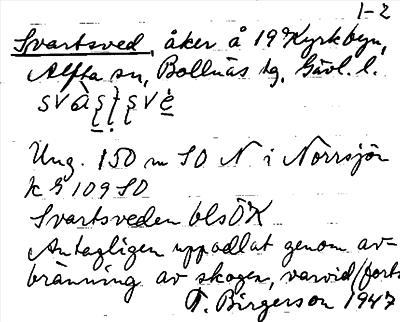 1-2
Svartsved, åker å 19 Kyrkbyn,
Alfta sn, Bollnäs tg, Gävl. l.
Ung. 150 m SO N i Norrsjön
k G 109 SO
Svartsveden bls ÖK
Antagligen uppodlat genom av-
bränning av skogen, varvid (forts
T. Birgerson 1947